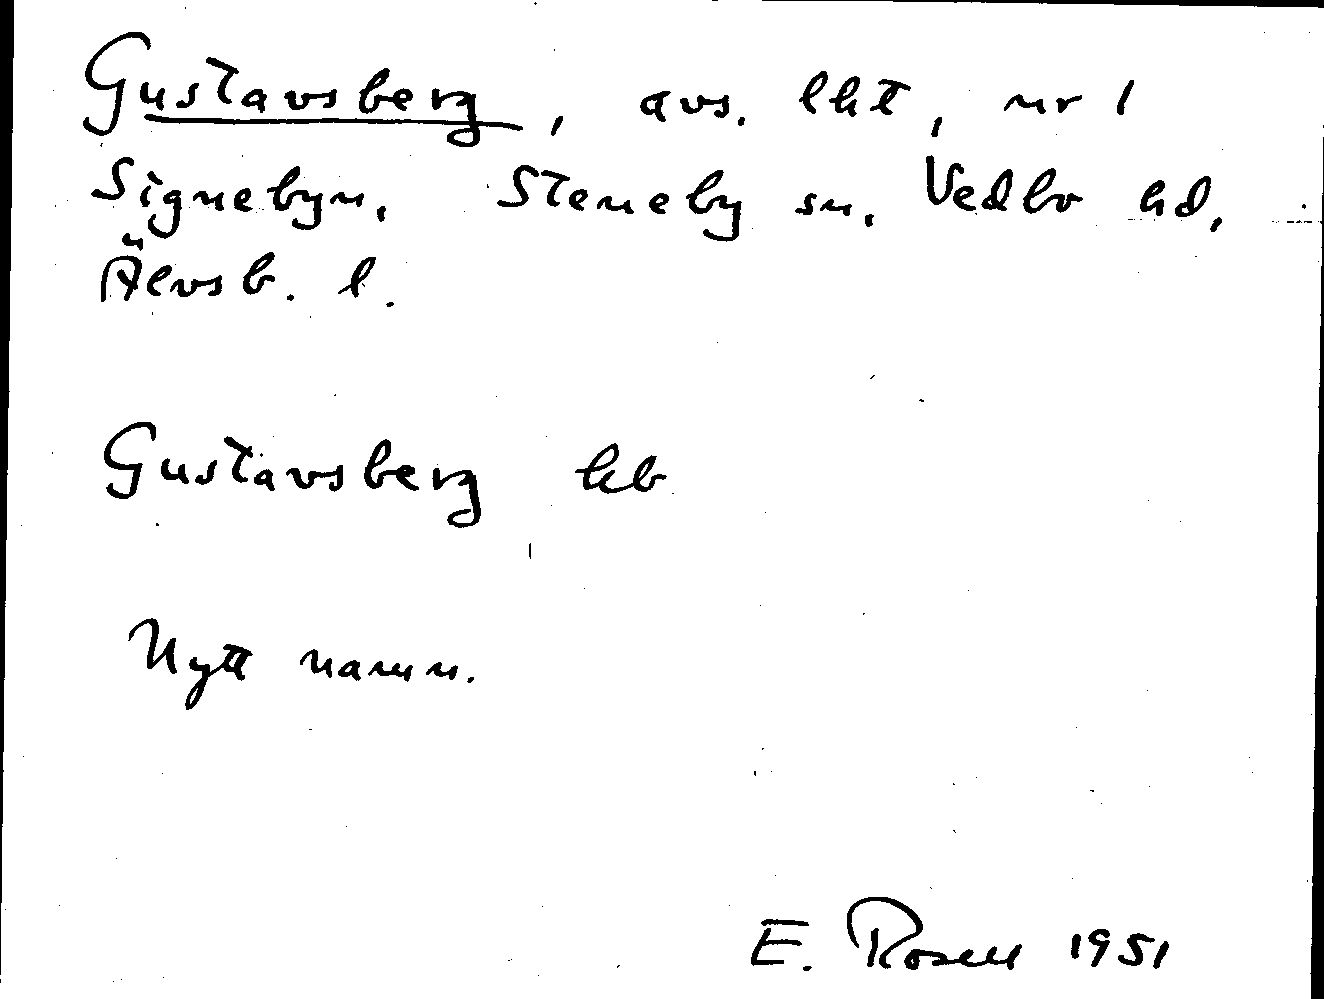 Gustavsberg, avs. lht, nr 1
Signebyn, Steneby sn, Vedbo hd,
Älvsb. l.
Gustavsberg kb
Nytt namn.
E. Rosell 1951